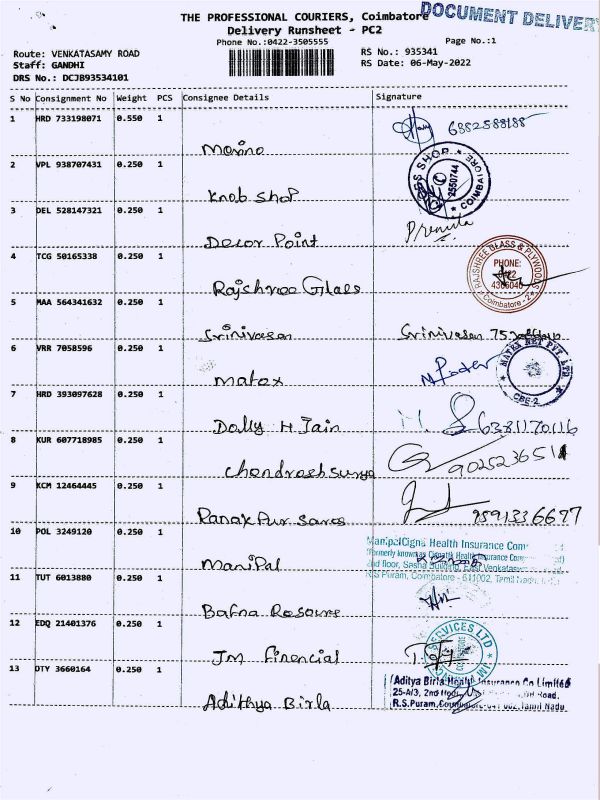 THE PROFESSIONAL COURIERS, Coimbatore
DOCUMENT DELIVERY
Delivery Runsheet - PC2
Phone No.:0422-3505555
Page No.:1
Route: VENKATASAMY ROAD
RS No.: 935341
Staff: GANDHI
RS Date: 06-May-2022
DRS No.: DCJB93534101
S No Consignment No Weight PCS Consignee Details Signature
1 HRD 733198071 0.550 1
Marino
2 VPL 938707431 0.250 1
Knob Shop
SHOP
2550744
COIMBATORE
3 DEL 528147321 0.250 1
Decor Point
Premila
4 TCG 50165338 0.250 1
Rajshree Glass
RAJSHREE GLASS & PLYWOODS
PHONE:
0422
Coimbatore - 2
5 MAA 564341632 0.250 1
Srinivasan Srinivasan
6 VRR 7058596 0.250 1
Matex
MATEX NET PVT LTD
CBE-2
7 HRD 393097628 0.250 1
Dolly H Jain 6381170116
8 KUR 607718985 0.250 1
Chandrash Surya
9 KCM 12464445 0.250 1
Ranakpur Sarees 9591336677
10 POL 3249120 0.250 1
Manipal
ManipalCigna Health Insurance Com
(Formerly known as CignaTTK Health Insurance Com
2nd floor, Sasha Building,
R.S Puram, Coimbatore - 641002, Tamil Nadu
11 TUT 6013880 0.250 1
Bafna Resourse
12 EDQ 21401376 0.250 1
JM Financial
SERVICES LTD
JM
13 DTY 3660164 0.250 1
Adithya Birla
Aditya Birla Health Insurance Co Limited
25-A/3, 2nd Floor, Road,
R.S.Puram, Coimbatore-641 002, Tamil Nadu